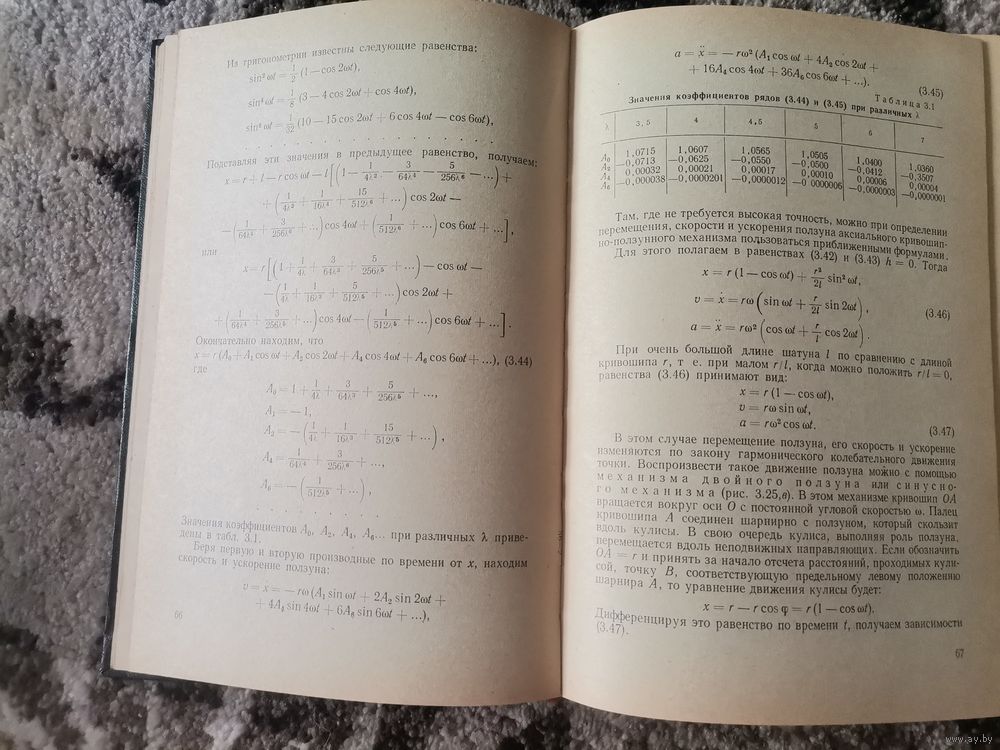 Из тригонометрии известны следующие равенства:
sin² ωt = 1/2 (1 — cos 2ωt),
sin⁴ ωt = 1/8 (3 — 4 cos 2ωt + cos 4ωt),
sin⁶ ωt = 1/32 (10 — 15 cos 2ωt + 6 cos 4ωt — cos 6ωt),
. . . . . . . . . . . . . . . . . . . .
Подставляя эти значения в предыдущее равенство, получаем:
x = r + l — r cos ωt — l [(1 — 1/4λ² — 3/64λ⁴ — 5/256λ⁶ — ...) +
+ (1/4λ² + 1/16λ⁴ + 15/512λ⁶ + ...) cos 2ωt —
— (1/64λ⁴ + 3/256λ⁶ + ...) cos 4ωt + (1/512λ⁶ + ...) cos 6ωt + ...],
или
x = r [(1 + 1/4λ + 3/64λ³ + 5/256λ⁵ + ...) — cos ωt —
— (1/4λ + 1/16λ³ + 15/512λ⁵ + ...) cos 2ωt +
+ (1/64λ³ + 3/256λ⁵ + ...) cos 4ωt — (1/512λ⁵ + ...) cos 6ωt + ...].
Окончательно находим, что
x = r (A₀ + A₁ cos ωt + A₂ cos 2ωt + A₄ cos 4ωt + A₆ cos 6ωt + ...), (3.44)
где
A₀ = 1 + 1/4λ + 3/64λ³ + 5/256λ⁵ + ...,
A₁ = — 1,
A₂ = — (1/4λ + 1/16λ³ + 15/512λ⁵ + ...),
A₄ = 1/64λ³ + 3/256λ⁵ + ...,
A₆ = — (1/512λ⁵ + ...),
. . . . . . . . . . . .
Значения коэффициентов A₀, A₂, A₄, A₆... при различных λ приве-
дены в табл. 3.1.
Беря первую и вторую производные по времени от x, находим
скорость и ускорение ползуна:
v = ẋ = — rω (A₁ sin ωt + 2A₂ sin 2ωt +
+ 4A₄ sin 4ωt + 6A₆ sin 6ωt + ...),
66
a = ẍ = — rω² (A₁ cos ωt + 4A₂ cos 2ωt +
+ 16A₄ cos 4ωt + 36A₆ cos 6ωt + ...).
(3.45)
Таблица 3.1
Значения коэффициентов рядов (3.44) и (3.45) при различных λ
λ 3,5 4 4,5 5 6 7
A₀ 1,0715 1,0607 1,0565 1,0505 1,0400 1,0360
A₂ —0,0713 —0,0625 —0,0550 —0,0500 —0,0412 —0,3507
A₄ 0,00032 0,00021 0,00017 0,00010 0,00006 0,00004
A₆ —0,000038 —0,0000201 —0,0000012 —0 0000006 —0,0000003 —0,0000001
Там, где не требуется высокая точность, можно при определении
перемещения, скорости и ускорения ползуна аксиального кривошип-
но-ползунного механизма пользоваться приближенными формулами.
Для этого полагаем в равенствах (3.42) и (3.43) h = 0. Тогда
x = r (1 — cos ωt) + r²/2l sin² ωt,
v = ẋ = rω (sin ωt + r/2l sin 2ωt),
(3.46)
a = ẍ = rω² (cos ωt + r/l cos 2ωt).
При очень большой длине шатуна l по сравнению с длиной
кривошипа r, т е. при малом r/l, когда можно положить r/l = 0,
равенства (3.46) принимают вид:
x = r (1 — cos ωt),
v = rω sin ωt,
a = rω² cos ωt.
(3.47)
В этом случае перемещение ползуна, его скорость и ускорение
изменяются по закону гармонического колебательного движения
точки. Воспроизвести такое движение ползуна можно с помощью
механизма двойного ползуна или синусно-
го механизма (рис. 3.25,в). В этом механизме кривошип OA
вращается вокруг оси O с постоянной угловой скоростью ω. Палец
кривошипа A соединен шарнирно с ползуном, который скользит
вдоль кулисы. В свою очередь кулиса, выполняя роль ползуна,
перемещается вдоль неподвижных направляющих. Если обозначить
OA = r и принять за начало отсчета расстояний, проходимых кули-
сой, точку B, соответствующую предельному левому положению
шарнира A, то уравнение движения кулисы будет:
x = r — r cos φ = r (1 — cos ωt).
Дифференцируя это равенство по времени t, получаем зависимости
(3.47).
67
www.ay.by